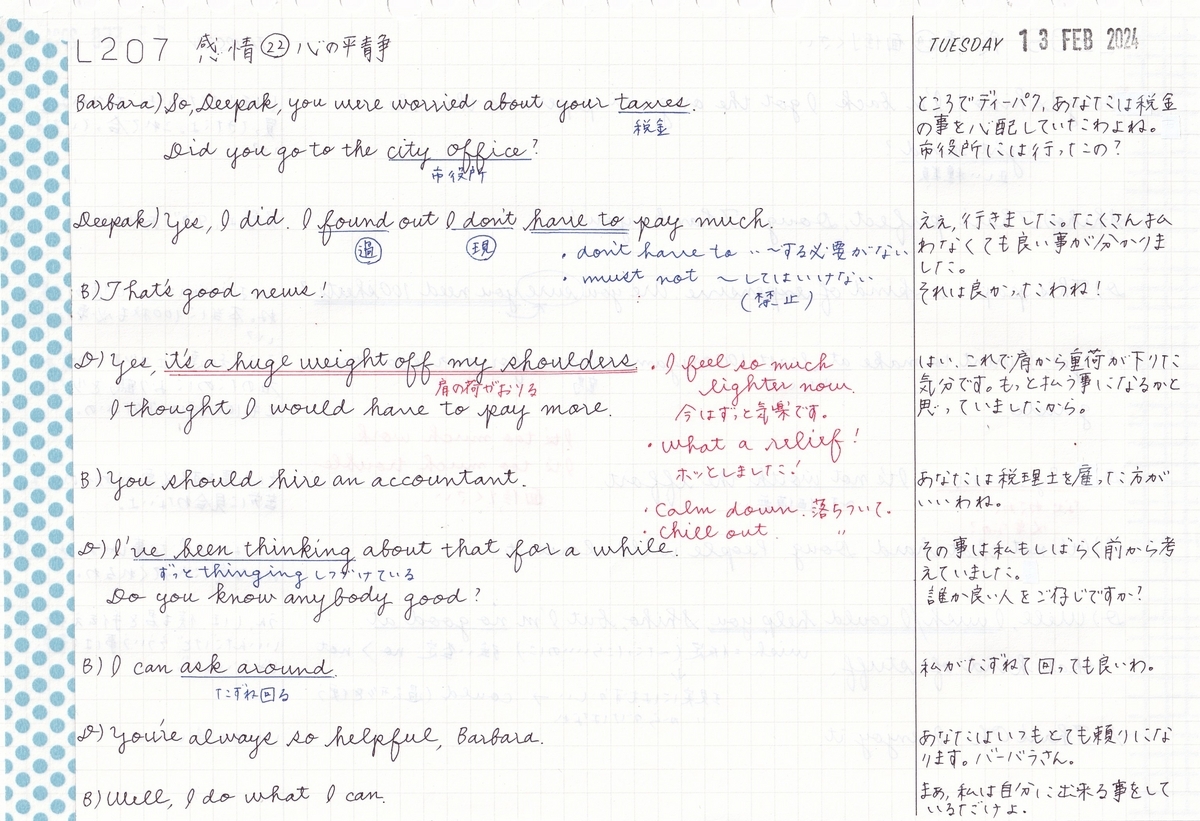 L207 感情㉒心の平静
TUESDAY 13 FEB 2024
Barbara) So, Deepak, you were worried about your taxes.
税金
Did you go to the city office?
市役所
ところでディーパク, あなたは税金
の事を心配していたわよね。
市役所には行ったの?
Deepak) Yes, I did. I found out I don't have to pay much.
過 現
・don't have to … ～する必要がない
・must not ～してはいけない
(禁止)
ええ, 行きました。たくさん払
わなくても良い事が分かりま
した。
B) That's good news!
それは良かったわね!
D) Yes, it's a huge weight off my shoulders.
肩の荷がおりる
I thought I would have to pay more.
・I feel so much
lighter now.
今はずっと気楽です。
・what a relief!
ホッとしました!
・calm down. 落ちついて.
・chill out. 〃
はい, これで肩から重荷が下りた
気分です。もっと払う事になるかと
思っていましたから。
B) You should hire an accountant.
あなたは税理士を雇った方が
いいわね。
D) I've been thinking about that for a while.
ずっとthingingしつづけている
Do you know anybody good?
その事は私もしばらく前から考
えていました。
誰か良い人をご存じですか?
B) I can ask around.
たずね回る
私がたずねて回っても良いわ。
D) You're always so helpful, Barbara.
あなたはいつもとても頼りにな
ります。バーバラさん。
B) Well, I do what I can.
まあ, 私は自分に出来る事をして
いるだけよ.